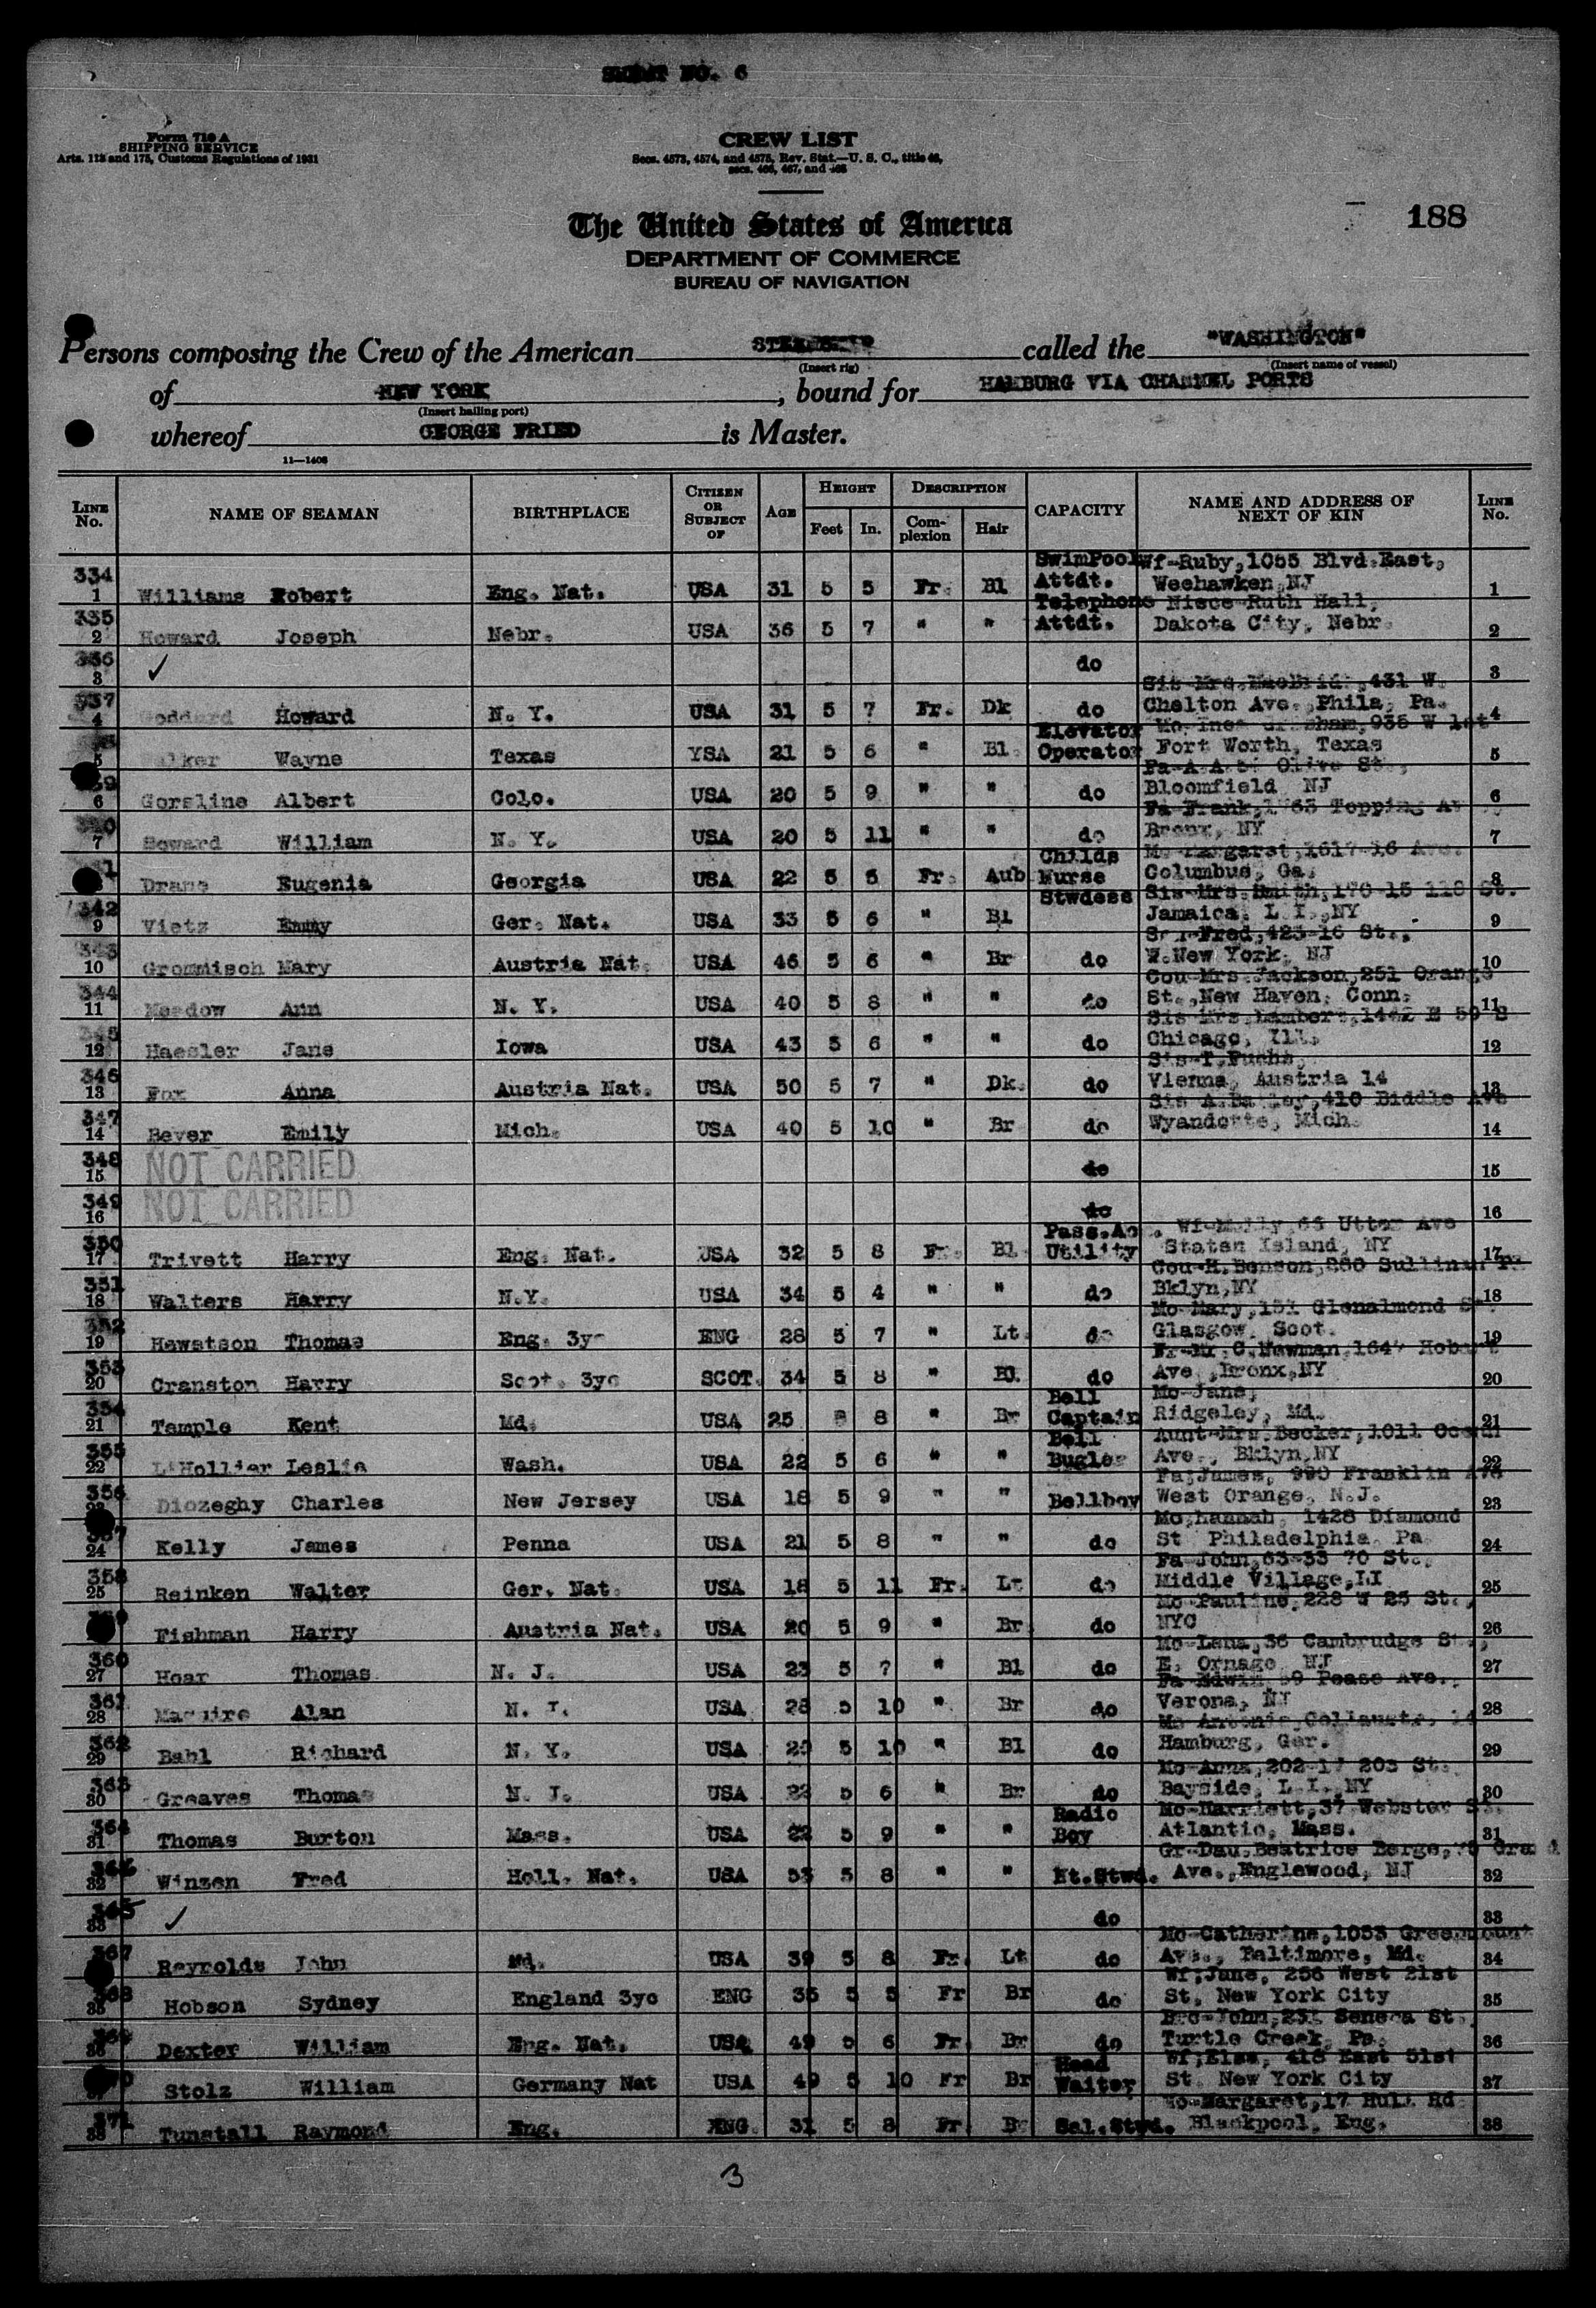 SHEET NO. 6
Form 710 A
SHIPPING SERVICE
Arts. 113 and 175, Customs Regulations of 1931
CREW LIST
Secs. 4573, 4574, and 4575, Rev. Stat.—U. S. C., title 46,
secs. 466, 467, and 468
The United States of America
188
DEPARTMENT OF COMMERCE
BUREAU OF NAVIGATION
Persons composing the Crew of the American STEAMSHIP called the "WASHINGTON"
(Insert rig) (Insert name of vessel)
of NEW YORK, bound for HAMBURG VIA CHANNEL PORTS
(Insert hailing port)
whereof GEORGE FRIED is Master.
11—1408
LINE No. NAME OF SEAMAN BIRTHPLACE CITIZEN OR SUBJECT OF AGE HEIGHT Feet In. DESCRIPTION Complexion Hair CAPACITY NAME AND ADDRESS OF NEXT OF KIN LINE No.
SwimPool Wf-Ruby,1055 Blvd.East,
334 1 Williams Robert Eng. Nat. USA 31 5 5 Fr. Bl Attdt. Weehawken,NJ 1
Telephone Niece-Ruth Hall,
335 2 Howard Joseph Nebr. USA 36 5 7 " " Attdt. Dakota City, Nebr. 2
336 3 ✓ do 3
Sis-Mrs. 431 W.
337 4 Goddard Howard N. Y. USA 31 5 7 Fr. Dk do Chelton Ave. Phila, Pa. 4
Elevator Mo. 935 W 1st
5 Walker Wayne Texas YSA 21 5 6 " Bl. Operator Fort Worth, Texas 5
Fa-A.A. Olive St.,
6 Gorsline Albert Colo. USA 20 5 9 " " do Bloomfield NJ 6
Fa Frank, Topping Av
7 Soward William N. Y. USA 20 5 11 " " do Bronx, NY 7
Childs Mo-Margaret,1617-16 Ave.
Drane Eugenia Georgia USA 22 5 5 Fr. Aub Nurse Columbus, Ga. 8
Stwdess Sis-Mrs.Smith,170-15 118 St.
342 9 Vietz Emmy Ger. Nat. USA 33 5 6 " Bl Jamaica, L.I.,NY 9
Fred,423-16 St.,
343 10 Grommisch Mary Austria Nat. USA 46 5 6 " Br do W.New York, NJ 10
Cou-Mrs.Jackson,251 Orange
344 11 Meadow Ann N. Y. USA 40 5 8 " " do St.,New Haven, Conn. 11
Sis-Mrs.Lambert,1442 E 59 S
345 12 Haesler Jane Iowa USA 43 5 6 " " do Chicago, Ill. 12
Sis-T.Fuchs,
346 13 Fox Anna Austria Nat. USA 50 5 7 " Dk. do Vienna, Austria 14 13
Sis A.Bailey,410 Biddle Ave
347 14 Beyer Emily Mich. USA 40 5 10 " Br do Wyandotte, Mich. 14
348 15 NOT CARRIED do 15
349 16 NOT CARRIED do 16
Pass.Ac. Wf-Molly 66 Utter Ave
350 17 Trivett Harry Eng. Nat. USA 32 5 8 Fr. Bl. Utility Staten Island, NY 17
Cou-H.Benson,260 Sullivan Pl.
351 18 Walters Harry N.Y. USA 34 5 4 " " do Bklyn,NY 18
Mo-Mary,151 Glenalmond St.
352 19 Hewetson Thomas Eng. 3yc ENG 28 5 7 " Lt. do Glasgow, Scot. 19
C.Newman,1647 Hobart
353 20 Cranston Harry Scot. 3yc SCOT. 34 5 8 " Bl. do Ave.,Bronx,NY 20
Bell Mo-Jane,
354 21 Temple Kent Md. USA 25 5 8 " Br Captain Ridgeley, Md. 21
Bell Aunt-Mrs.Becker,1011
355 22 L'Hollier Leslie Wash. USA 22 5 6 " " Bugler Ave., Bklyn,NY 22
Fa;James, 990 Franklin Ave
356 23 Diozeghy Charles New Jersey USA 18 5 9 " " Bellboy West Orange, N.J. 23
Mo;hannah, 1428 Diamond
357 24 Kelly James Penna USA 21 5 8 " " do St Philadelphia, Pa 24
Fa-John,63-33 70 St.,
358 25 Reinken Walter Ger. Nat. USA 18 5 11 Fr. Lt do Middle Village,LI 25
Mo-Pauline,228 W 25 St.,
Fishman Harry Austria Nat. USA 20 5 9 " Br do NYC 26
Mo-Lena,36 Cambrudge St.,
360 27 Hoar Thomas N. J. USA 23 5 7 " Bl do E. Ornage NJ 27
Fa-Edwin,59 Pease Ave.,
361 28 Maguire Alan N. J. USA 28 5 10 " Br do Verona, NJ 28
Mo Antonie, 14
362 29 Bahl Richard N. Y. USA 29 5 10 " Bl do Hamburg, Ger. 29
Mo-Anna,202-17 203 St.
363 30 Greaves Thomas N. J. USA 22 5 6 " Br do Bayside, L.I.,NY 30
Radio Mo-Harriett,37 Webster St.
364 31 Thomas Burton Mass. USA 22 5 9 " " Boy Atlantic, Mass. 31
Gr-Dau.Beatrice Berge, Grand
32 Winzen Fred Holl. Nat. USA 53 5 8 " " Nt.Stwd. Ave.,Englewood, NJ 32
33 ✓ do 33
Mo-Catherine,1053 Greenmount
367 Reynolds John Md. USA 39 5 8 Fr. Lt do Ave., Baltimore, Md. 34
Wf;Jane, 256 West 21st
368 35 Hobson Sydney England 3yc ENG 35 5 5 Fr Br do St. New York City 35
Bro-John,231 Seneca St.
369 36 Dexter William Eng. Nat. USA 49 5 6 Fr. Br do Turtle Creek, Pa. 36
Head Wf;Elsa, 416 East 51st
Stolz William Germany Nat USA 49 5 10 Fr Br Waiter St. New York City 37
Mo-Margaret,17 Rd
371 38 Tunstall Raymond Eng. ENG. 31 5 8 Fr. Br Sal.Stwd. Blackpool, Eng. 38
3